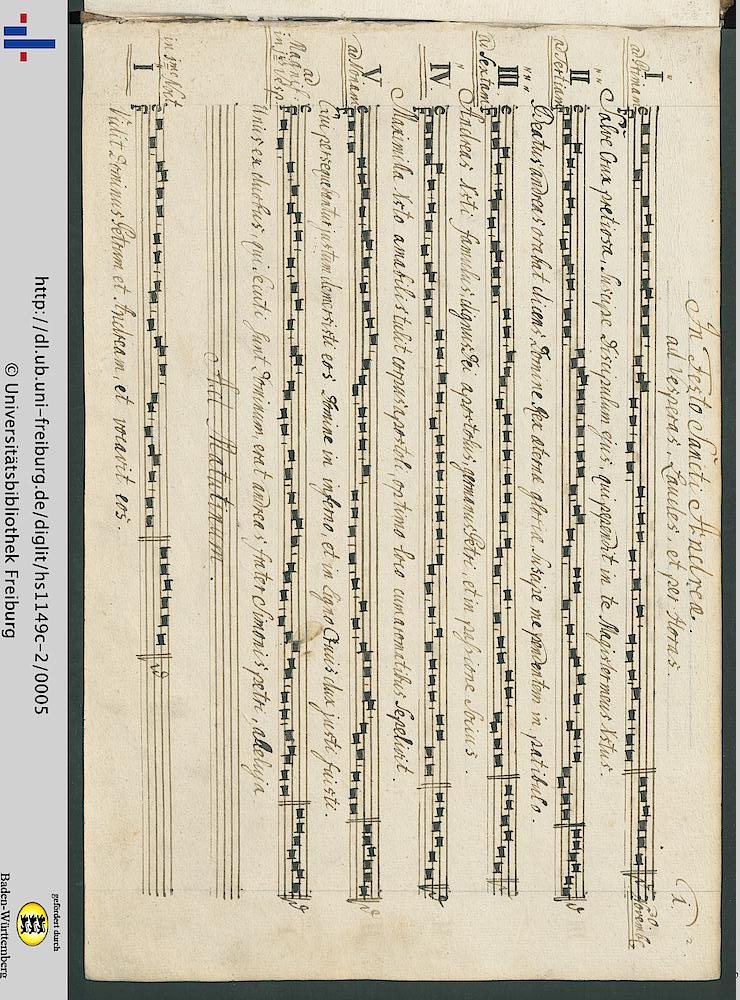 1.
In Festo Sancti Andreæ.
30. Novemb:
ad Vesperas, Laudes, et per Horas.
I
ad Primam
Salve Crux pretiosa, suscipe discipulum ejus, qui pependit in te Magister meus Xstus.
II
ad Tertiam
Beatus andreas orabat dicens Domine Rex æternæ gloriæ suscipe me pendentem in patibulo.
III
ad Sextam
Andreas Xsti famulus dignus Dei apostolus, germanus Petri, et in passione Socius.
IV
Maximilla Xsto amabilis tulit corpus apostoli, optimo loco cum aromatibus Sepelivit.
V
ad Nonam
Qui persequebantur justum demersisti eos Domine in inferno, et in Ligno Crucis dux justi fuisti.
ad
Magnif:
Unus ex duobus, qui secuti sunt Dominum, erat andreas frater Simonis petri, alleluja.
Ad Matutinum.
I
Vidit Dominus Petrum et Andream, et vocavit eos.
http://dl.ub.uni-freiburg.de/diglit/hs1149c-2/0005
© Universitätsbibliothek Freiburg
gefördert durch
Baden-Württemberg